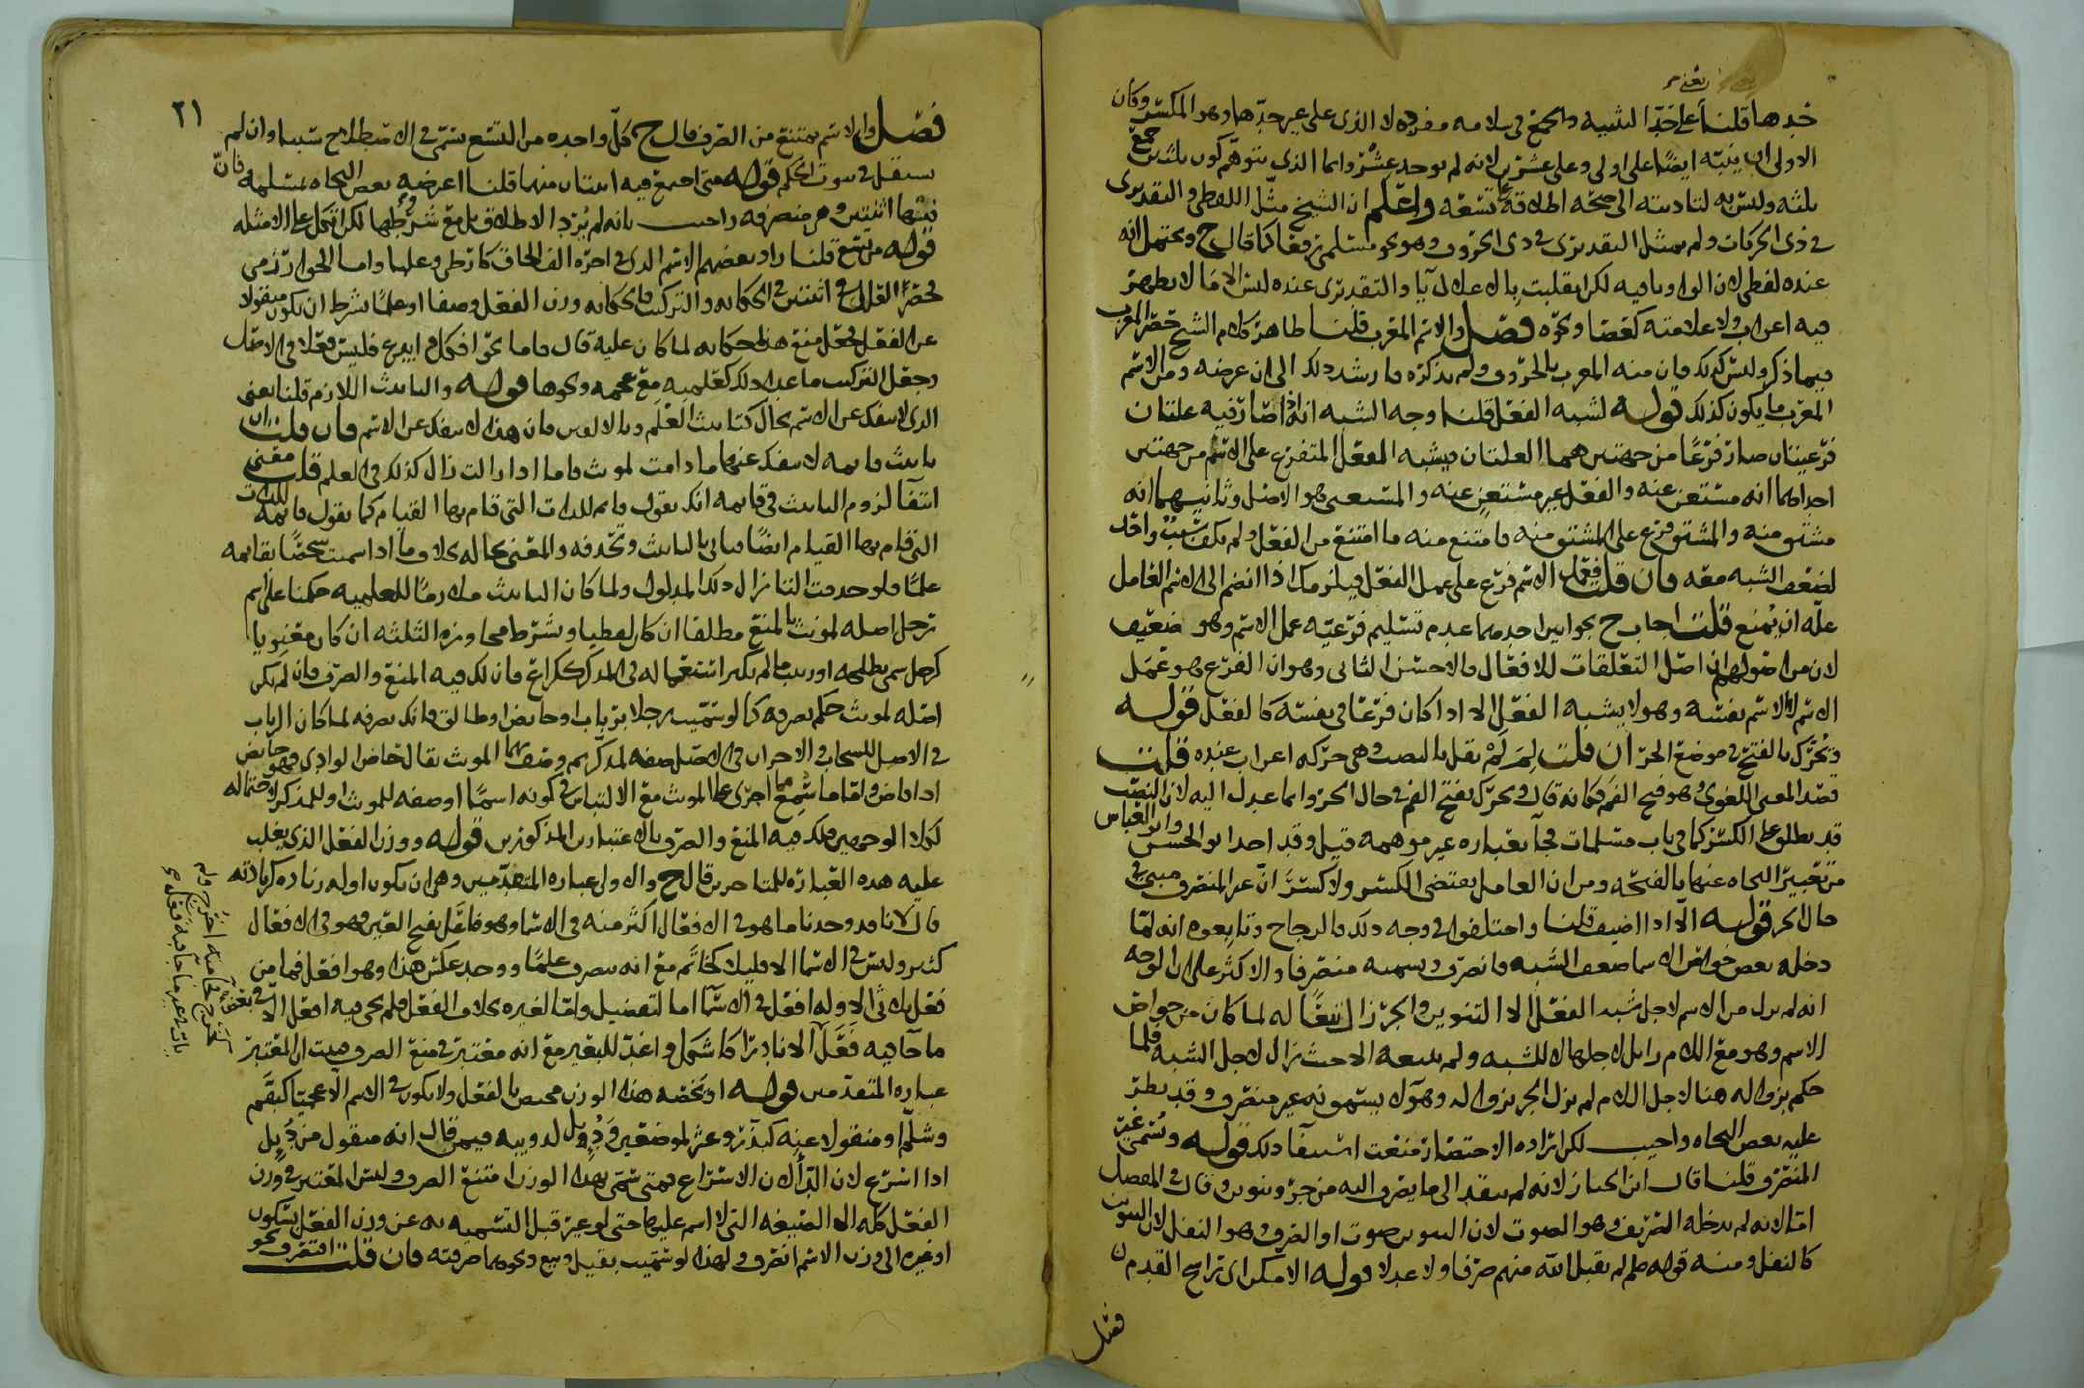 حدها قلنا على حد التثنيه والجمع في سلامه مفرده لا الذي على غير حدها وهو المكسر وكان
الاولى ان ينبه ايضا على اولي وعلى عشرين لانه لم يوجد عشر وانما الذي يتوهم كون ثلثين جمع
ثلثه وليس به لتاديته الى صحه اطلاقه على تسعه واعلم ان الشيخ مثل اللفظي والتقديري
في ذي الحركات ولم يمثل التقديري في ذي الحروف وهو نحو مسلمي رفعا كما قال ح ويحتمل انه
عنده لفظي لان الواو باقيه لكن انقلبت بالاعلال يا والتقديري عنده ليس الا ما لا يظهر
فيه اعراب ولا علامته كعصا ونحوه فصل والاسم المعرب قلنا ظاهر كلام الشيخ حصر المعرب
فيما ذكر وليس كذلك فان منه المعرب بالحروف ولم يذكره
المعرب ما يكون كذلك قوله لشبه الفعل قلنا وجه الشبه انه اذا صار فيه علتان
فرعيتان صار فرعا من جهتين هما العلتان فيشبه الفعل المتفرع على الاسم من جهتين
احداهما انه مستغن عنه والفعل غير مستغن عنه والمستغنى هو الاصل وثانيهما انه
مشتق منه والمشتق فرع على المشتق منه فامتنع منه ما امتنع من الفعل ولم يكف سبب واحد
لضعف الشبه معه فان قلت فعمل الاسم فرع على عمل الفعل فيلزمك اذا انضم الى الاسم العامل
عله ان يمنع قلت اجاب ح بجوابين احدهما عدم تسليم فرعيه عمل الاسم وهو ضعيف
لان من اصولهم ان اصل التعلقات للافعال والاحسن الثاني وهو ان الفرع هو عمل
الاسم لا الاسم نفسه وهو لا يشبه الفعل الا اذا كان فرعا في نفسه كالفعل قوله
وتحرك بالفتح في موضع الجر ان قلت لم لم يقل بالنصب وهي حركه اعراب عنده قلت
قصد المعنى اللغوي وهو فتح الفم فكانه قال وتحرك بفتح الفم في حال الجر وانما عدل اليه لان النصب
قد يطلق على الكسر كما في باب مسلمات فجاء بعباره غير موهمه قيل وقد اخذ ابو الحسن وابو العباس
من تعبير النحاه عنها بالفتحه ومن ان العامل يقتضي الكسر ولا كسر ان غير المنصرف مبني في
حال الجر قوله الا اذا اضيف قلنا واختلفوا في وجه ذلك فالزجاج وتابعوه انه لما
دخله بعض خواص الاسما ضعف الشبه فانصرف ويسميه منصرفا والاكثر على ان الوجه
انه لم يزل من الاسم لاجل شبه الفعل الا التنوين والجر زال تبعا له لما كان من خواص
الاسم وهو مع اللام زايل لاجلها لا للشبه ولم يتبعه الا حيث زال لاجل الشبه فلما
حكم بزواله هنا لاجل اللام لم يزل الجر بزواله وهولا يسمونه غير منصرف وقد نظر
عليه بعض النحاه واجيب لكن اراده الاختصار منعت استيفا ذلك قوله ويسمى غير
المنصرف قلنا قال ابن الخباز لانه لم ينقد الى ما يصرف اليه من جر وتنوين وقال في المفصل
اما لانه لم يدخله الصريف وهو الصوت لان التنوين صوت او الصرف وهو النفل لان التنوين
كالنفل ومنه قولهم لم يقبل الله منهم صرفا ولا عدلا قوله الامكن اي راسخ القدم
فصل
٢١
فصل والاسم يمتنع من الصرف قال ح كل واحده من التسع تسمى في الاصطلاح سببا وان لم
يستقل في ثبوت الحكم قوله متى اجتمع فيه اثنان منها قلنا اعترضه بعض النحاه بمسلمه فان
فيها اثنتين وهي منصرفه واجيب بانه لم يرد الاطلاق بل مع شروطها لكن اتكل على الامثله
قوله من تسع قلنا زاد بعضهم الاسم الذي في اخره الف الحاق كارطى وعلها واما الخوارزمي
فحصر العلل في اثنتين في الحكايه والتركيب فالحكايه وزن الفعل وصفا او علما بشرط ان يكون منقولا
عن الفعل فجعل منع هذا لحكايه لما كان عليه قال
وجعل التركيب ما عدا ذلك كعلميه مع عجمه ونحوها قوله والتانيث اللازم قلنا يعني
الذي لا ينفك عن الاسم بحال كتانيث العلم وبالالفين فان هذا لا ينفك عن الاسم فان قلت ان
تانيث قايمه لا ينفك عنها ما دامت لمونث فاما اذا زالت زال كذلك في العلم قلت معنى
انتفا لزوم التانيث في قايمه انك تقول قايم للذات التي قام بها القيام كما تقول قايمه للذات
التي قام بها القيام ايضا فياتي بالتانيث وتحذفه والمعنى بحاله بخلاف ما اذا سميت شخصا بقايمه
علما فلو حذفت التا زال ذلك المدلول ولما كان التانيث ملازما للعلميه حكمنا على اسم
رجل اصله لمونث بالمنع مطلقا ان كان لفظيا وبشرط مجاوزه الثلثه ان كان معنويا
كرجل سمي بطلحه او زينب ما لم يكثر استعماله في المذكر ككراع فان لك فيه المنع والصرف فان لم يكن
اصله لمونث حكم بصرفه كما لو سميت رجلا برباب او حايض او طالق فانك تصرفه لما كان الرباب
في الاصل للسحاب والاخران في الاصل صفه لمذكر ثم وصف بهما المونث يقال حاض الوادي فهو حايض
اذا فاض واما ما سمع مما اجري على المونث مع الالتباس في كونه اسما او صفه للمونث او للمذكر لاحتماله
لكلا الوجهين فلك فيه المنع والصرف بالاعتبارين المذكورين قوله ووزن الفعل الذي يغلب
عليه هذه العباره للمتاخرين قال ح والاولى عباره المتقدمين وهي ان يكون اوله زياده كزيادته
قال لانا قد وجدنا ما هو في الافعال اكثر منه في الاسما وهو فاعل بفتح العين فهو في الافعال
كثير وليس في الاسما الا قليلا كخاتم مع انه ينصرف علما ووجد عكس هذا وهو افعل فما من
فعل ثلاثي الا وله افعل في الاسما اما لتفضيل واما لغيره بخلاف الفعل فلم يجي فيه افعل الا في بعض
ما جا فيه فعل الا نادرا كاشكل واغد للبعير مع انه معتبر في منع الصرف فثبت ان المعتبر
عباره المتقدمين قوله او يخصه هذا الوزن مختص بالفعل ولا يكون في الاسم الا عجميا كبقم
وشلم او منقولا عنه كبذر وعثر لموضعين ودئل لدويبه فيمن قال انه منقول من دئل
اذا اسرع لان الدألان الاسراع فمتى سمي بهذا الوزن امتنع الصرف وليس المعتبر في وزن
الفعل كله الا الصيغه التي الاسم عليها حتى لو غير قبل التسميه به عن وزن الفعل بسكون
او غيره الى وزن الاسم انصرف ولهذا لو سميت بقيل وبيع ونحوهما صرفته فان قلت انصرف نحو